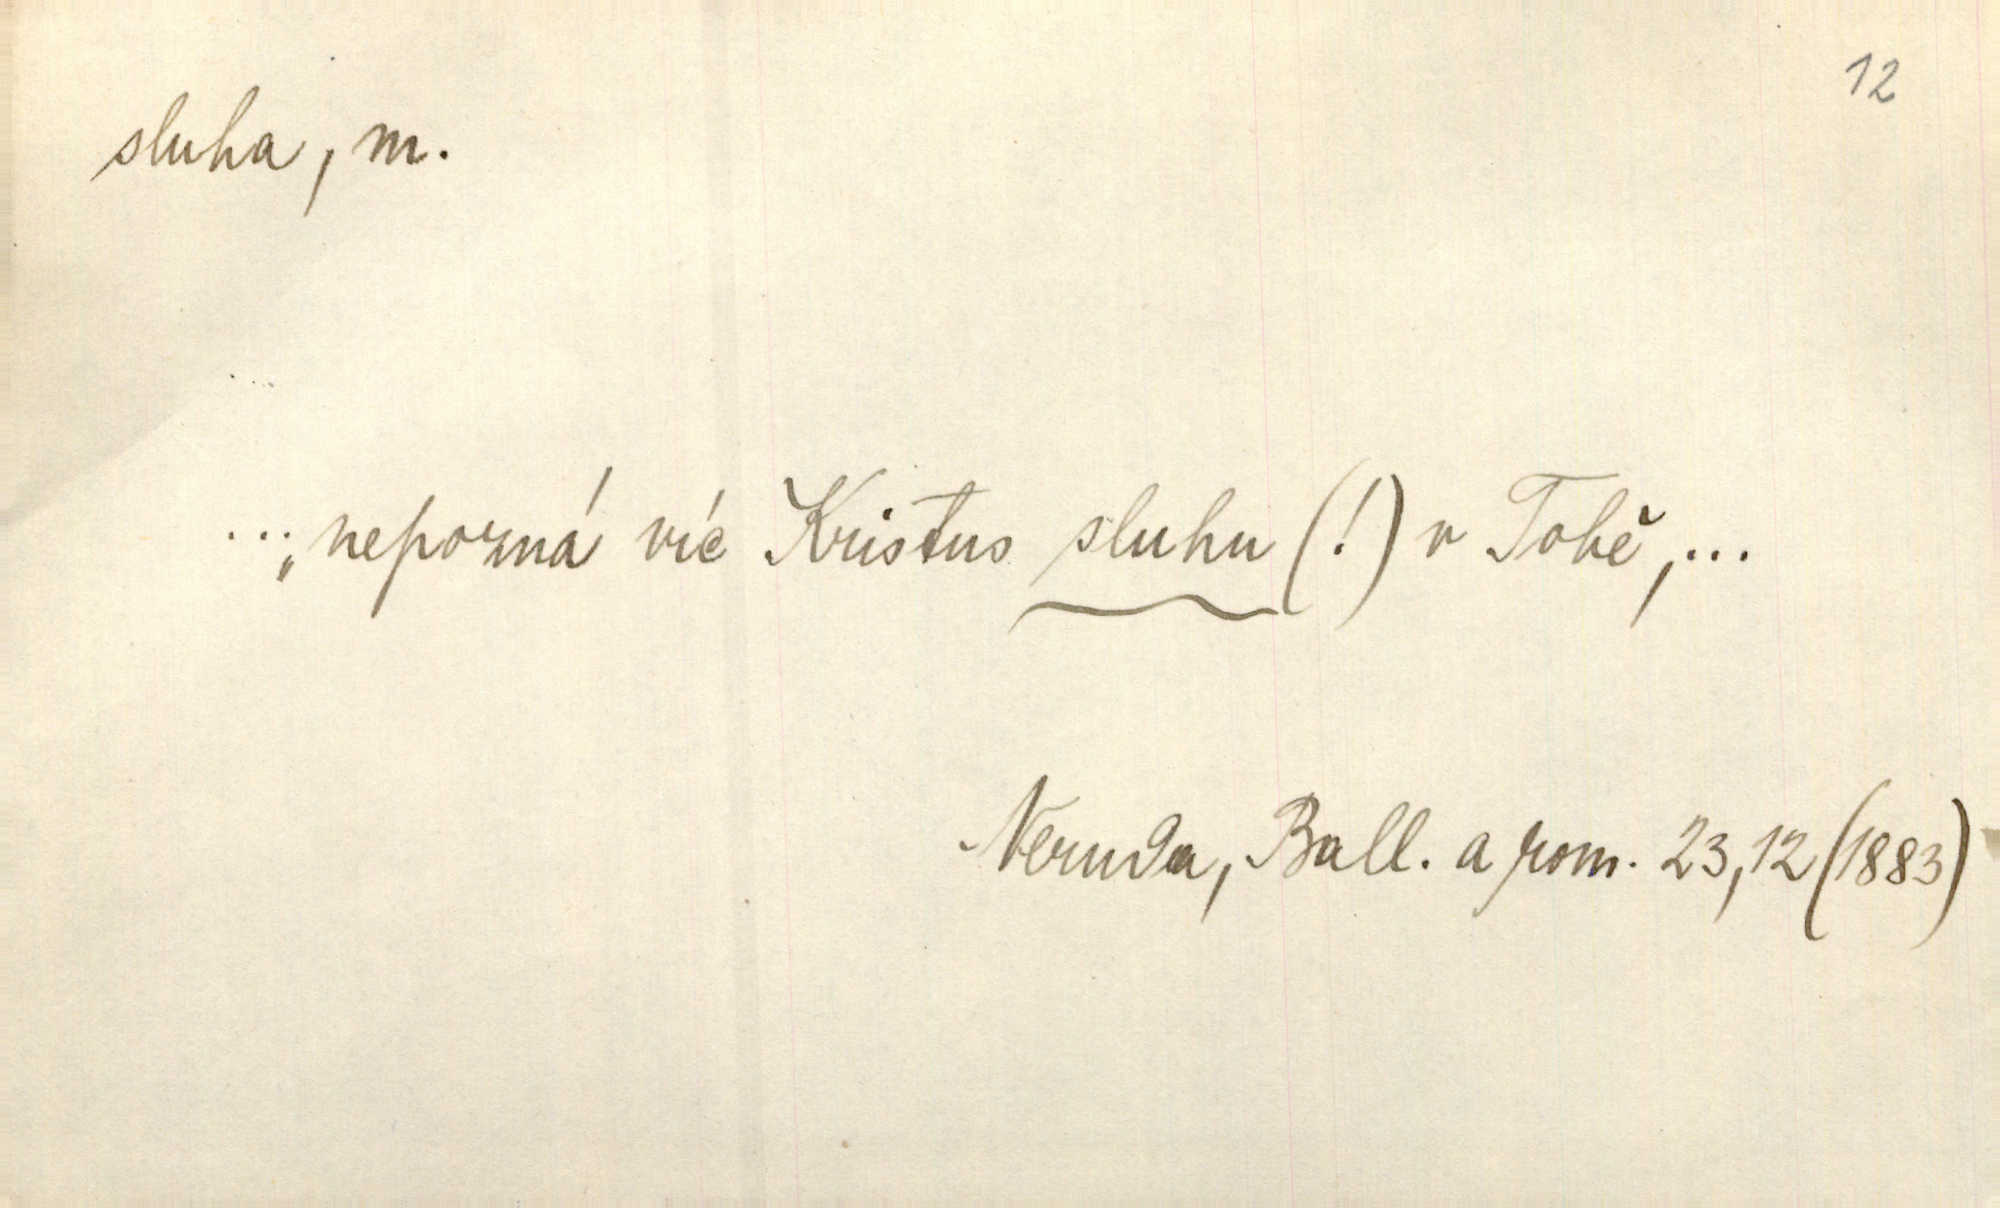 12
sluha, m.
..., nepozná víc Kristus sluhu (!) v Tobě,...
Neruda, Ball. a rom. 23,12 (1883)